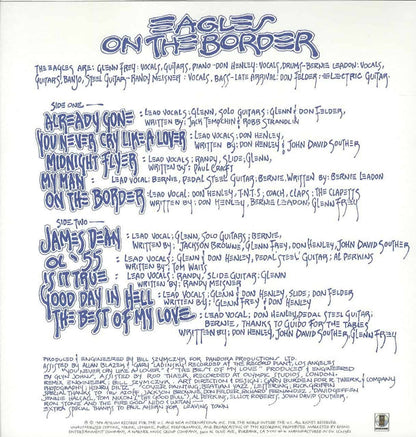 EAGLES
ON THE BORDER
THE EAGLES ARE: GLENN FREY: VOCALS, GUITARS, PIANO-DON HENLEY: VOCALS, DRUMS-BERNIE LEADON: VOCALS,
GUITARS, BANJO, STEEL GUITAR-RANDY MEISNER: VOCALS, BASS-LATE ARRIVAL: DON FELDER: ELECTRIC GUITAR.
SIDE ONE
ALREADY GONE : LEAD VOCALS: GLENN, SOLO GUITARS: GLENN & DON FELDER,
WRITTEN BY: JACK TEMPCHIN & ROBB STRANDLIN
YOU NEVER CRY LIKE A LOVER : LEAD VOCALS: DON HENLEY,
WRITTEN BY: DON HENLEY & JOHN DAVID SOUTHER
MIDNIGHT FLYER : LEAD VOCALS: RANDY, SLIDE: GLENN,
WRITTEN BY: PAUL CRAFT
MY MAN : LEAD VOCAL: BERNIE, PEDAL STEEL GUITAR: BERNIE, WRITTEN BY: BERNIE LEADON
ON THE BORDER : LEAD VOCAL: DON HENLEY, T.N.T.S; COACH, CLAPS: THE CLAPETTS
WRITTEN BY: DON HENLEY, BERNIE LEADON, GLENN FREY
SIDE TWO
JAMES DEAN : LEAD VOCAL: GLENN, SOLO GUITARS: BERNIE,
WRITTEN BY: JACKSON BROWNE, GLENN FREY, DON HENLEY, JOHN DAVID SOUTHER
OL' 55 : LEAD VOCALS: GLENN & DON HENLEY, PEDAL STEEL GUITAR: AL PERKINS
WRITTEN BY: TOM WAITS
IS IT TRUE : LEAD VOCALS: RANDY, SLIDE GUITAR: GLENN
WRITTEN BY: RANDY MEISNER
GOOD DAY IN HELL : LEAD VOCALS: GLENN & DON HENLEY, SLIDE: DON FELDER
WRITTEN BY: GLENN FREY & DON HENLEY
THE BEST OF MY LOVE : LEAD VOCAL: DON HENLEY, PEDAL STEEL GUITAR:
BERNIE, THANKS TO GUIDO FOR THE TABLES
WRITTEN BY: DON HENLEY, JOHN DAVID SOUTHER, GLENN FREY
PRODUCED & ENGINEERED BY BILL SZYMCZYK FOR PANDORA PRODUCTIONS LTD.
ASSISTED BY ALLAN BLAZEK & GARY LADINSKY/ RECORDED AT THE RECORD PLANT, LOS ANGELES
"YOU NEVER CRY LIKE A LOVER" & "THE BEST OF MY LOVE" PRODUCED & ENGINEERED
BY GLYN JOHNS, ASSISTED BY ROD THAIR, RECORDED AT OLYMPIC STUDIOS, LONDON
EXTRA SPECIAL THANKS TO PAUL AHERN FOR LEAVING TOWN